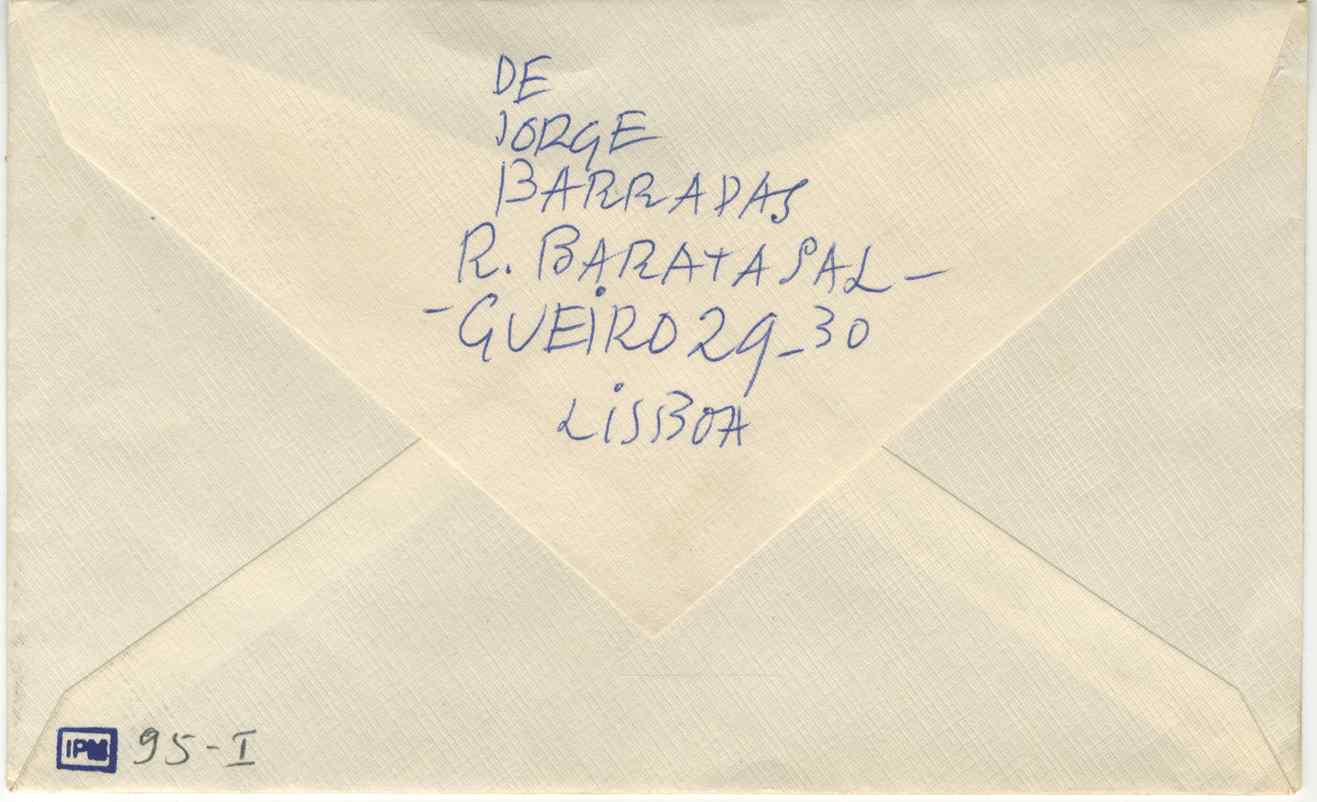 DE
JORGE
BARRADAS
R. BARATA SAL-
-GUEIRO 29-30
LISBOA
IPM 95-I